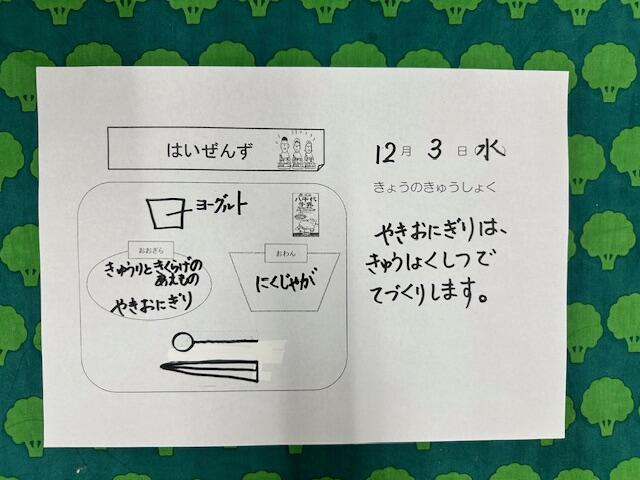 はいぜんず
ヨーグルト
八千代
牛乳
おおざら
きゅうりときくらげの
あえもの
やきおにぎり
おわん
にくじゃが
12月3日水
きょうのきゅうしょく
やきおにぎりは、
きゅうしょくしつで
てづくりします。